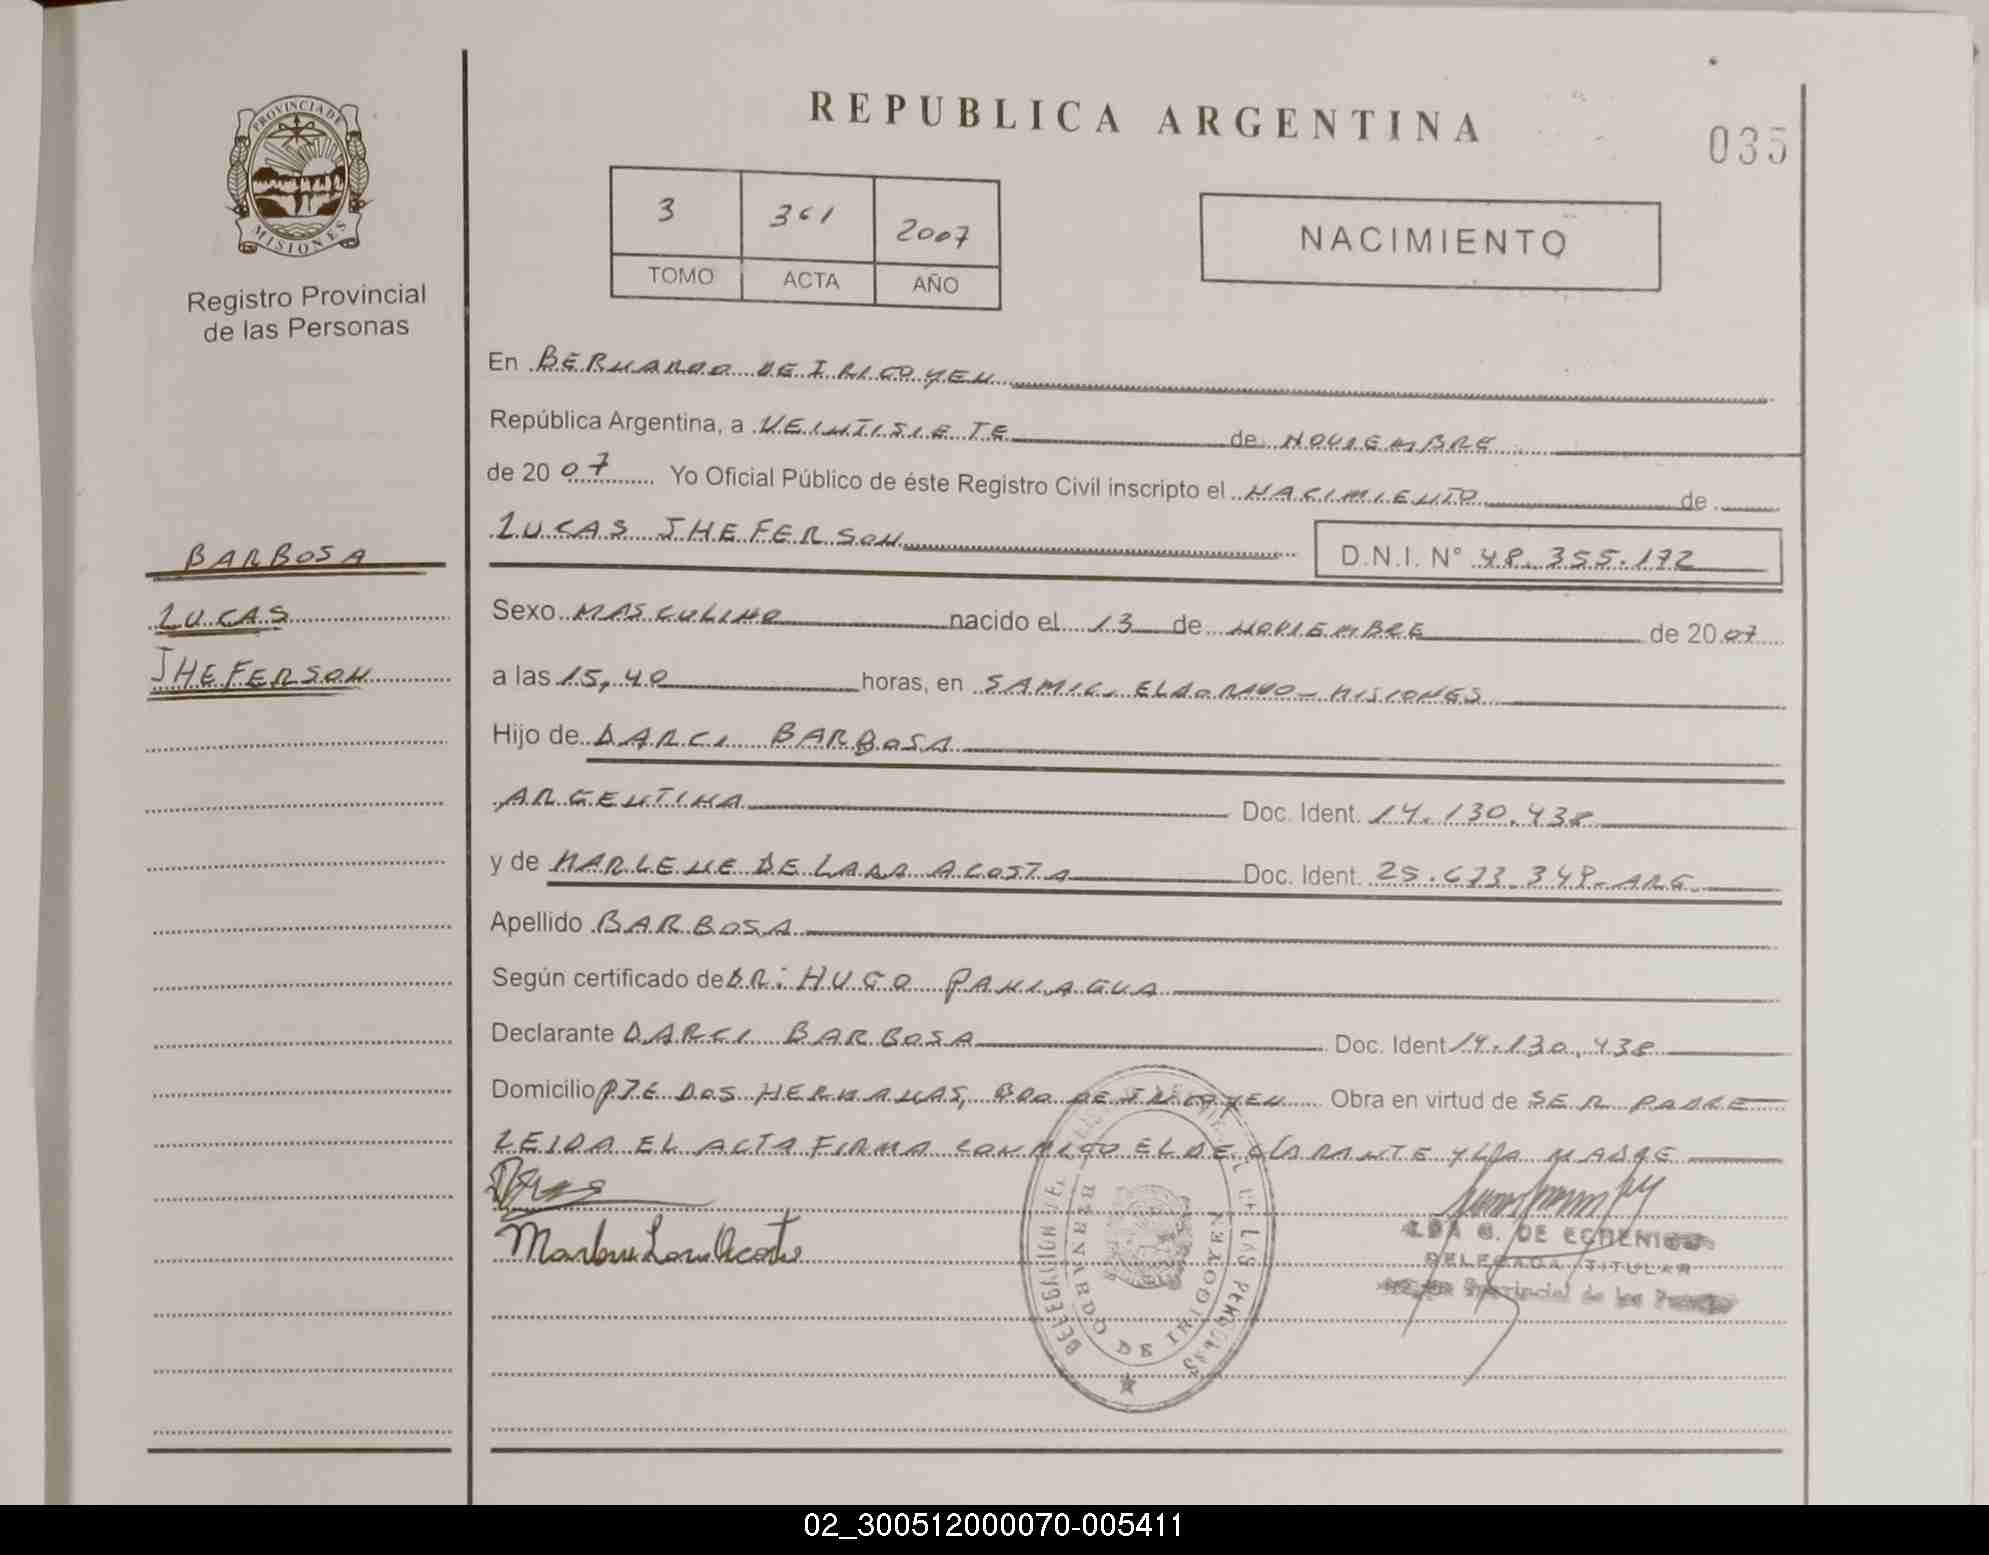 REPUBLICA ARGENTINA
035
PROVINCIA DE MISIONES
Registro Provincial
de las Personas
3 361 2007
TOMO ACTA AÑO
NACIMIENTO
En BERNARDO DE IRIGOYEN
República Argentina, a VEINTISIETE de NOVIEMBRE
de 2007 Yo Oficial Público de éste Registro Civil inscripto el NACIMIENTO de
LUCAS JHEFERSON D.N.I. N° 48.355.172
BARBOSA
LUCAS
JHEFERSON
Sexo MASCULINO nacido el 13 de NOVIEMBRE de 2007
a las 15,40 horas, en SAMIC. ELDORADO - MISIONES
Hijo de DARCI BARBOSA
ARGENTINA Doc. Ident. 14.130.438
y de MARLENE DE LARA ACOSTA Doc. Ident. 25.673.348- ARG.
Apellido BARBOSA
Según certificado de DR: HUGO PANIAGUA
Declarante DARCI BARBOSA Doc. Ident 14.130.438
Domicilio PJE DOS HERMANAS, BDO DE IRIGOYEN Obra en virtud de SER PADRE
LEIDA EL ACTA FIRMA CONMIGO EL DECLARANTE Y LA MADRE
DELEGACION DE LAS PERSONAS
BERNARDO DE IRIGOYEN
DELEGADA TITULAR
Provincial de las
02_300512000070-005411